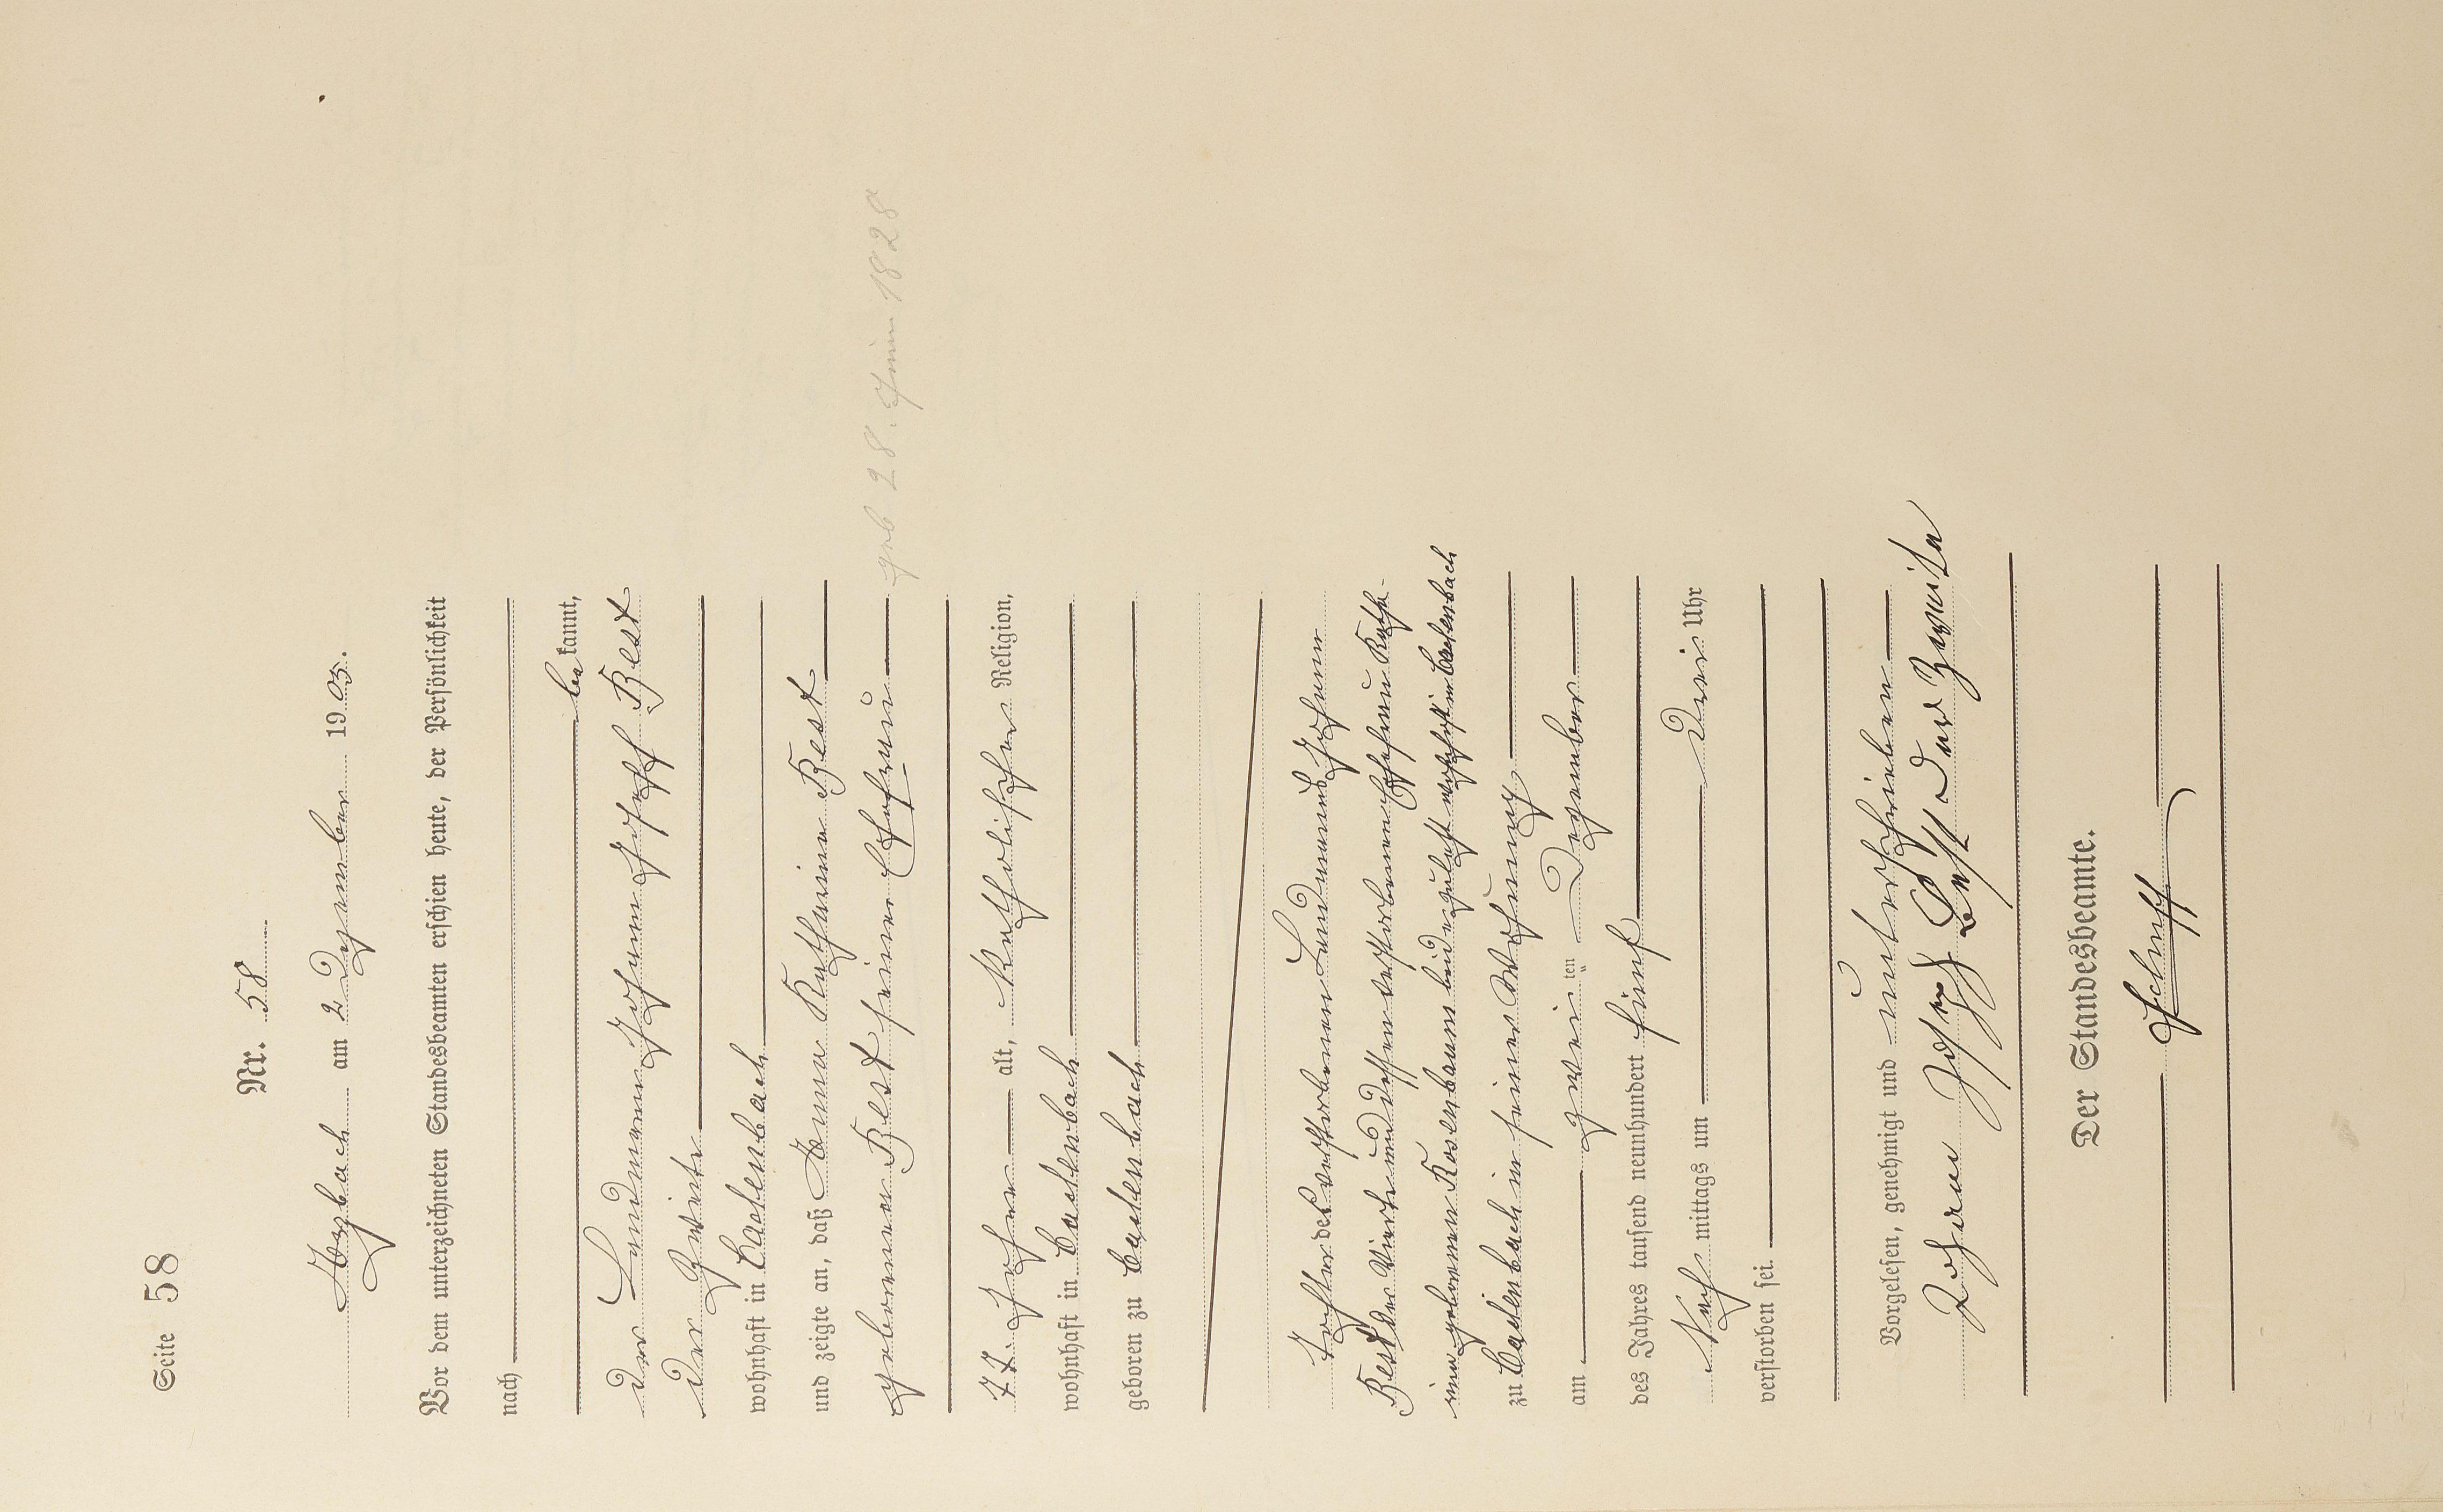 Seite 58
Nr. 58
Atzbach am 2 Dezember 1905.
Vor dem unterzeichneten Standesbeamten erschien heute, der Persönlichkeit
nach
be kannt,
der Landmann Johann Joseph Best
der Zweite
wohnhaft in
und zeigte an, daß Anna Katharina Best
geborenen Best seiner Ehefrau
geb 28. Juni 1828
77. Jahre alt, Katholischer Religion,
wohnhaft in
geboren zu
Tochter des verstorbenen Landmanns Johann
Best der Vierte und dessen verstorbenen Ehefrau Katha-
rina geborenen Kaslenbaum beide zuletzt wohnhaft in
zu in seiner Wohnung
am zweiten Dezember
des Jahres tausend neunhundert fünf
Nach mittags um drei Uhr
verstorben sei.
Vorgelesen, genehmigt und unterschrieben
Johann Joseph Best der Zweite
Der Standesbeamte.